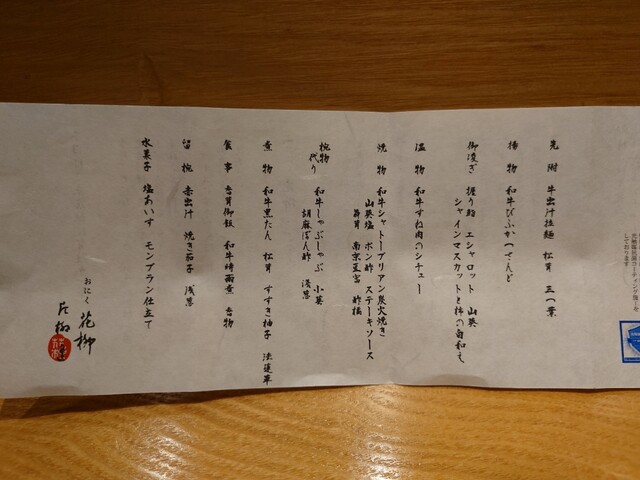 先附 牛出汁拉麺 松茸 三つ葉
揚物 和牛びふかつさんど
御凌ぎ 握り鮨 エシャロット 山葵
シャインマスカットと柿の白和え
温物 和牛すね肉のシチュー
焼物 和牛シャトーブリアン炭火焼き
山葵塩 ポン酢 ステーキソース
舞茸 南京豆富 酢橘
椀物代り 和牛しゃぶしゃぶ 小蕪
胡麻ぽん酢 浅葱
煮物 和牛黒たん 松茸 すすき柚子 法蓮草
食事 舌茸御飯 和牛時雨煮 香物
留椀 赤出汁 焼き茄子 浅葱
水菓子 塩あいす モンブラン仕立て
おにく 花柳
片柳